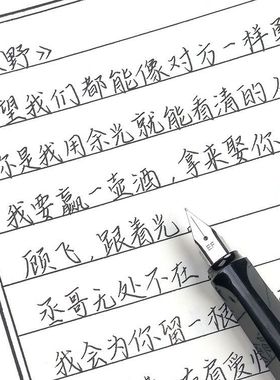 野》
望我们都能像对方一样勇
你是我用余光就能看清的人
我要赢一壶酒，拿来娶你
顾飞，跟着光
丞哥无处不在
我会为你留一
有爱
EF